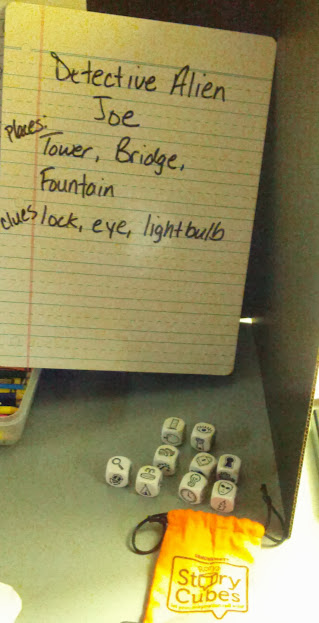 Detective Alien
Joe
places:
Tower, Bridge,
Fountain
clues lock, eye, lightbulb
Rory's
Story
Cubes